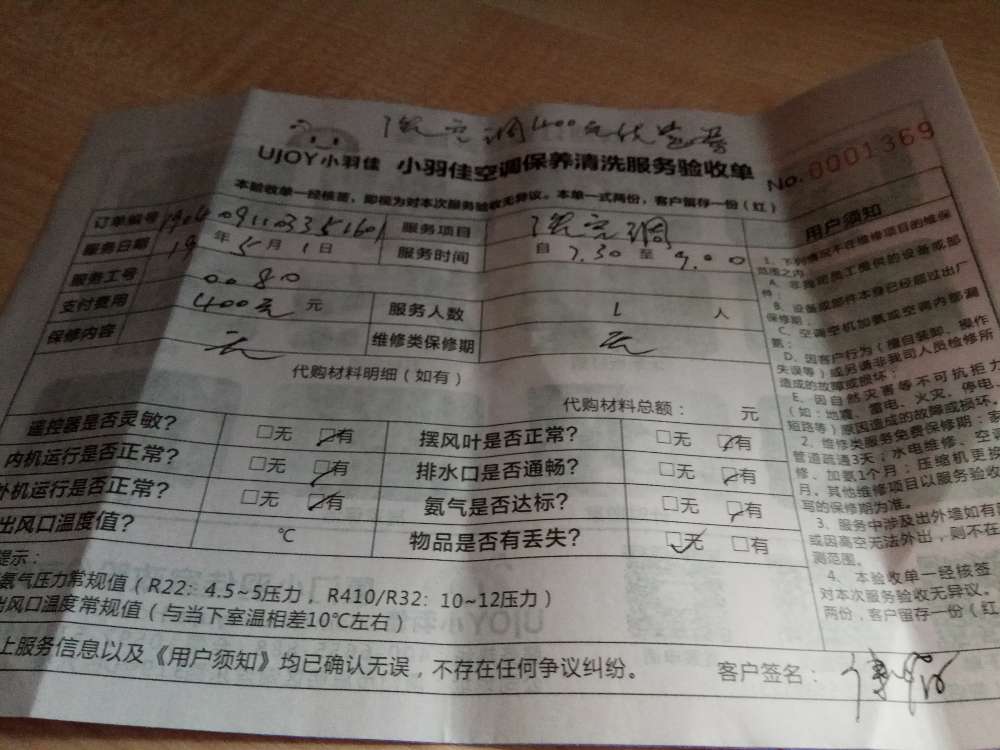 空调400元
UJOY小羽佳 小羽佳空调保养清洗服务验收单
No. 0001369
本验收单一经核签，即视为对本次服务验收无异议。本单一式两份，客户留存一份（红）
订单编号 服务项目 空调
服务日期 19年5月1日 服务时间 自7.30至9.00
服务工号 0080
支付费用 400元 元 服务人数 1 人
保修内容 无 维修类保修期 无
代购材料明细（如有）
代购材料总额： 元
遥控器是否灵敏？ □无 ☑有 摆风叶是否正常？ □无 ☑有
内机运行是否正常？ □无 ☑有 排水口是否通畅？ □无 ☑有
外机运行是否正常？ □无 ☑有 氨气是否达标？ □无 ☑有
出风口温度值？ ℃ 物品是否有丢失？ ☑无 □有
提示：
氨气压力常规值（R22：4.5~5压力，R410/R32：10~12压力）
出风口温度常规值（与当下室温相差10℃左右）
上服务信息以及《用户须知》均已确认无误，不存在任何争议纠纷。 客户签名：
用户须知
1、下列情况不在维修项目的维保
范围之内
A、非我司员工提供的设备或部
件；
B、设备或部件本身已经超过出厂
保修期；
C、空调空机加氨或空调内部漏
氨；
D、因客户行为（擅自装卸、操作
失误等）或另请非我司人员检修所
造成的故障或损坏；
E、因自然灾害等不可抗拒力
（如：地震、雷电、火灾、停电、
短路等）原因造成的故障或损坏。
2、维修类服务免费保修期：家
管道疏通3天；水电维修、空
修、加氨1个月；压缩机更换
月，其他维修项目以服务验收
写的保修期为准。
3、服务中涉及出外墙如有
或因高空无法外出，则不在
测范围。
4、本验收单一经核签
对本次服务验收无异议。
两份，客户留存一份（红